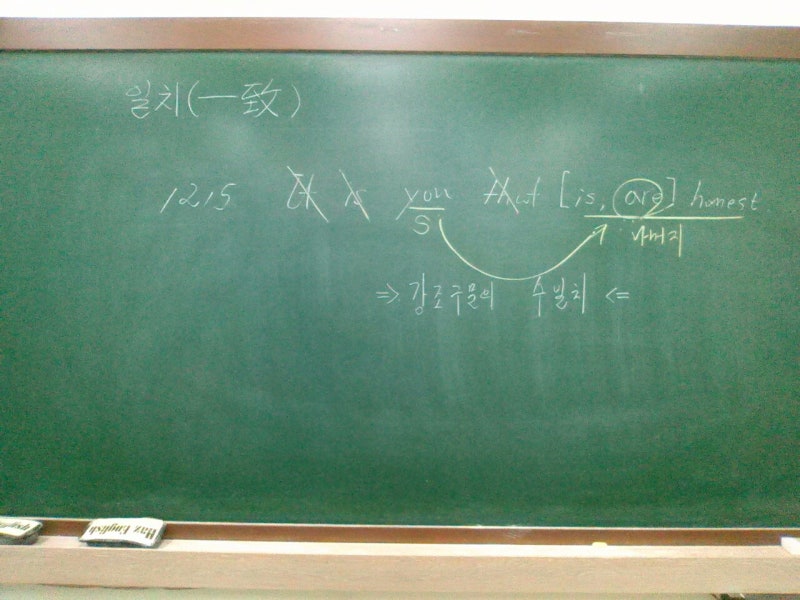 일치(一致)
1215 It is you that [is, are] honest
S 나머지
⇒ 강조구문의 수일치 ⇐
Max English